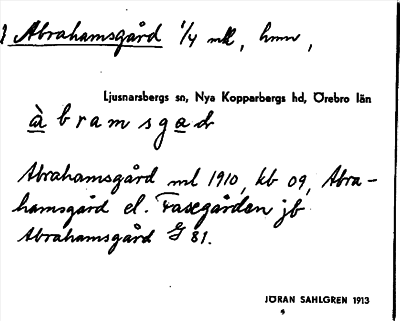 1 Abrahamsgård 1/4 mtl, hmn,
Ljusnarsbergs sn, Nya Kopparbergs hd, Örebro län
àbramsgad
Abrahamsgård ml 1910, kb 09, Abra-
hamsgård el. Fasegården jb
Abrahamsgård G 81.
JÖRAN SAHLGREN 1913